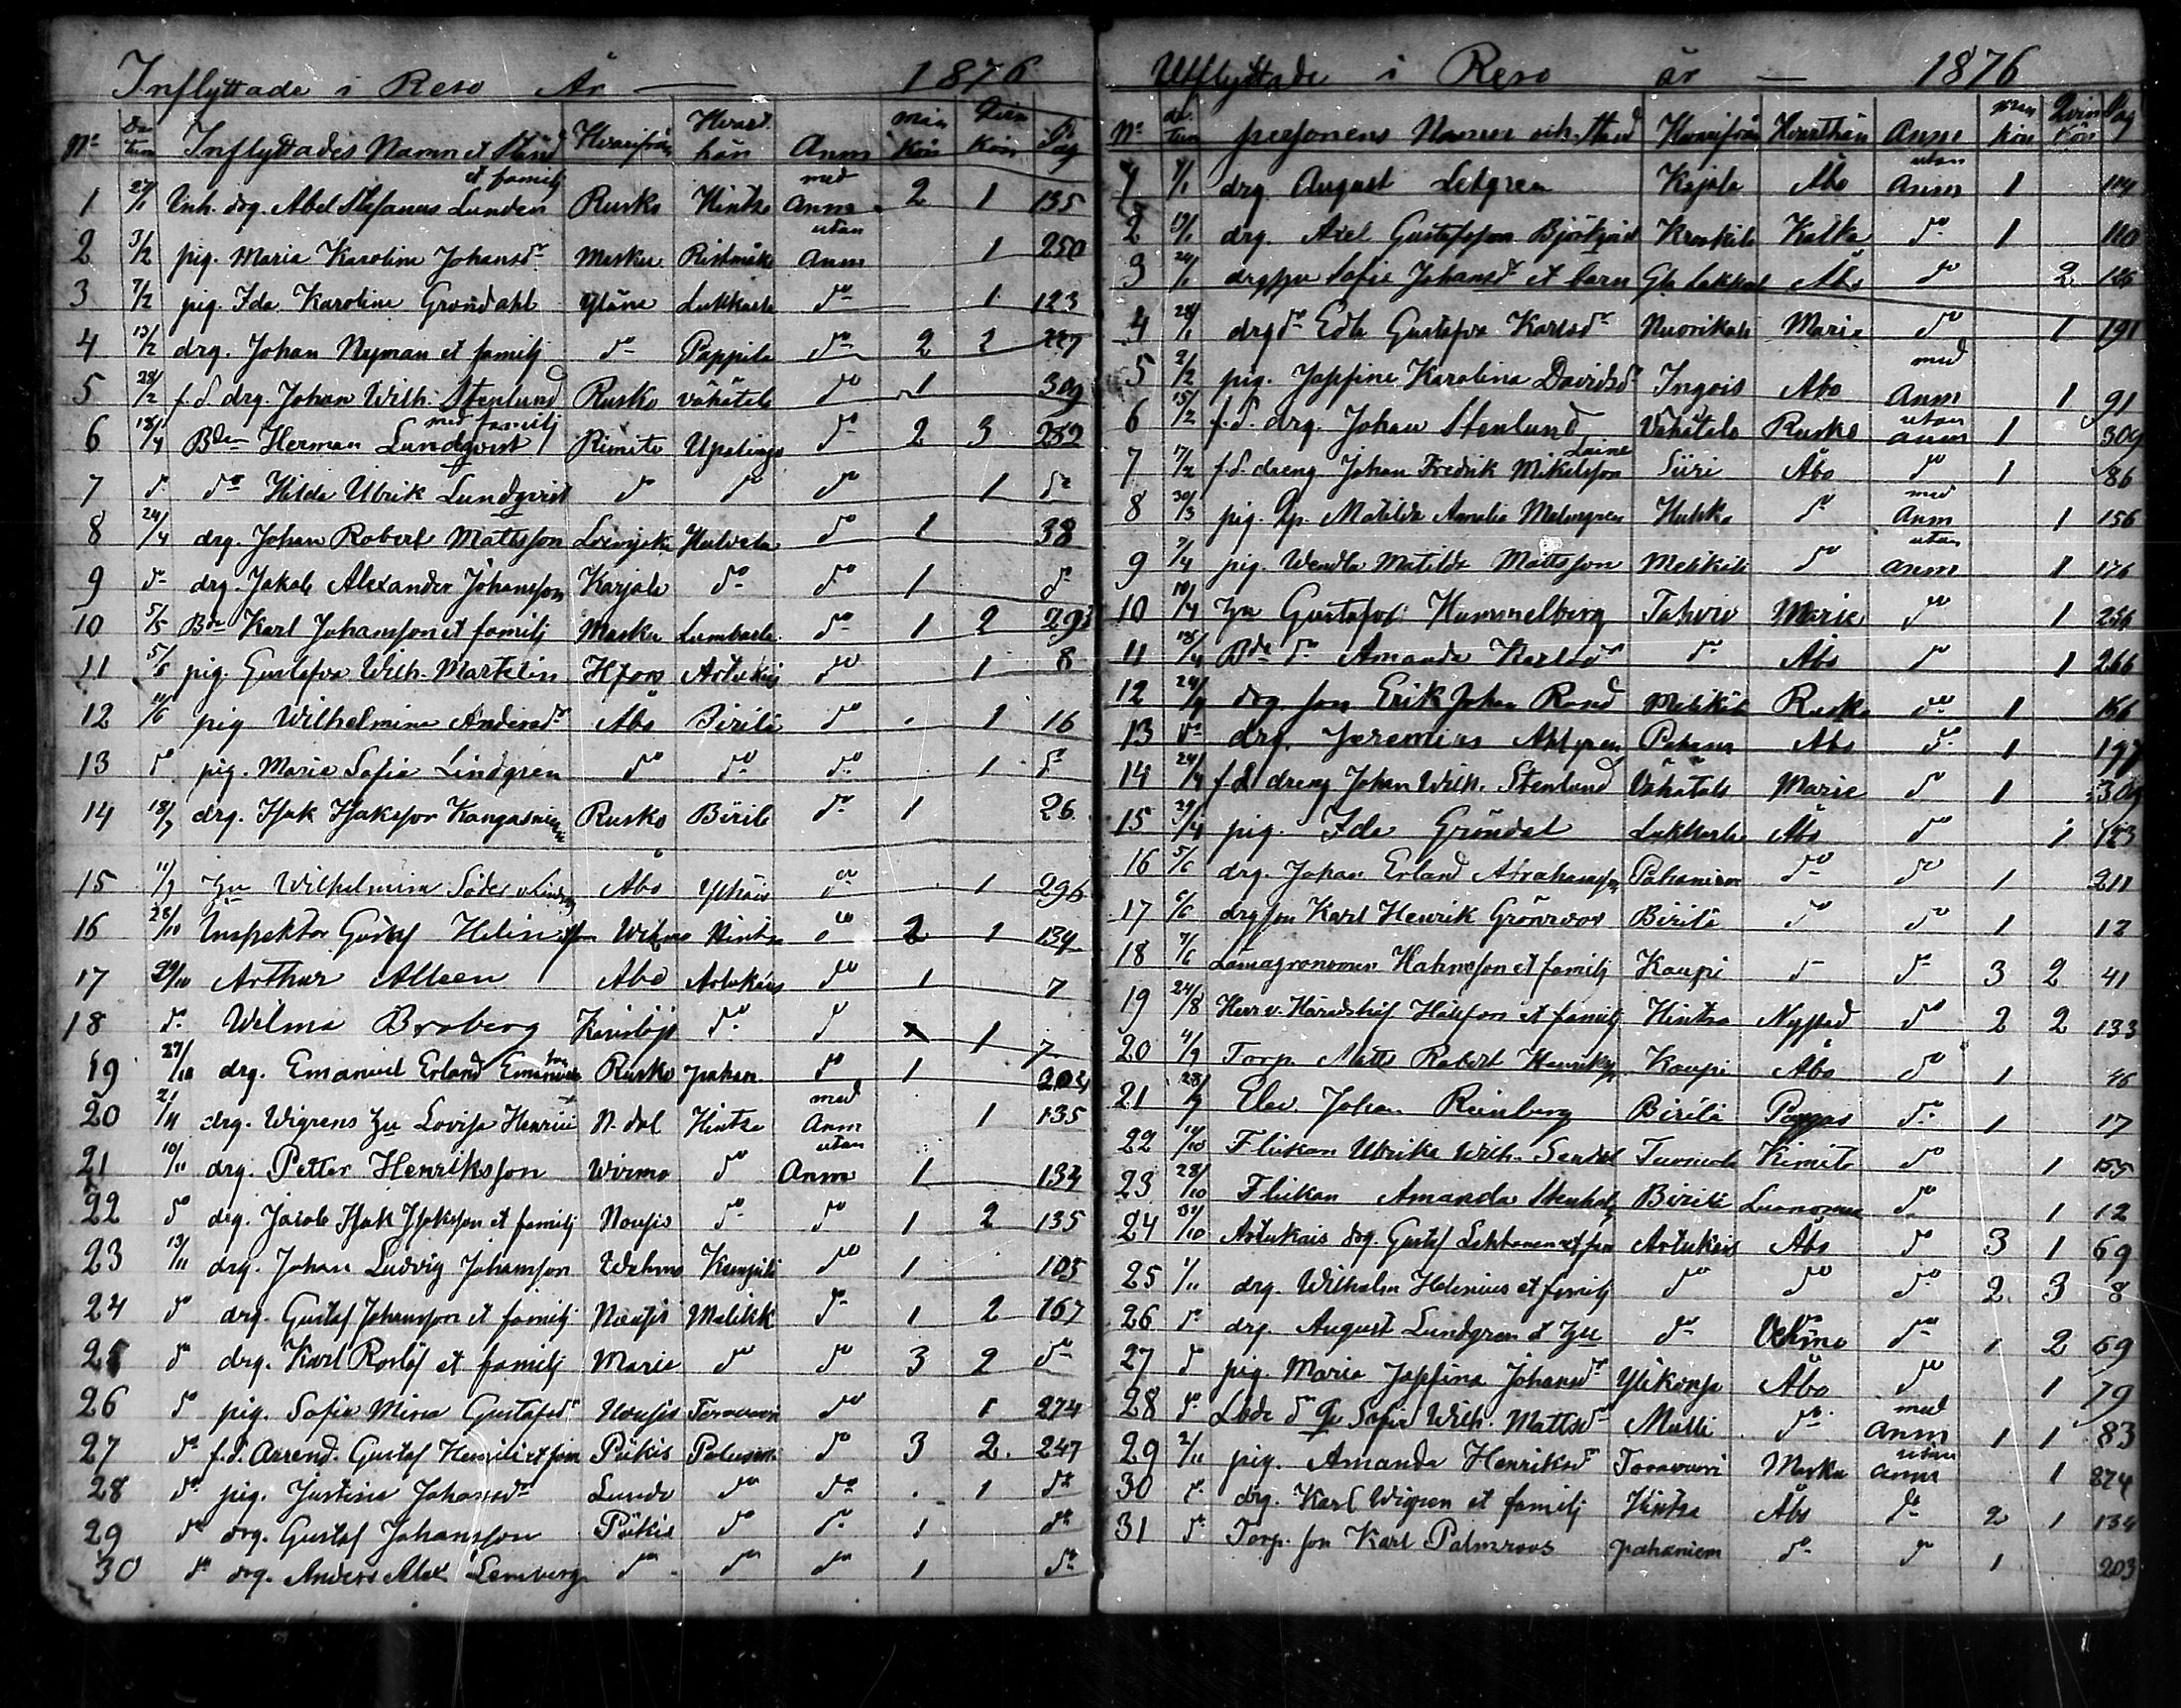 Inflyttade i Reso År — 1876
No Datum Inflyttades Namn et Stånd Hvarifrån Hvart hän Anm män Kön Qvin Kön Pag
1 27/1 Enh. drg. Abel Stefanus Lunden et familj Rusko Hintsa med Anm 2 1 135
2 3/2 pig. Maria Karolina Johansdr Masku Ristimäki utan Anm 1 250
3 7/2 pig. Ida Karolina Gröndahl Yläne Lukkarla do 1 123
4 13/2 drg. Johan Nyman et familj do Pappila do 2 2 227
5 28/2 f.d. drg. Johan Wilh. Stenlund Rusko Vähätalo do 1 309
6 18/4 Bden Herman Lundqvist med familj Rimito Upalinga do 2 3 252
7 do do Hilda Ulrik Lundqvist do do do 1 do
8 24/4 drg. Johan Robert Mattsson do 1 38
9 do drg. Jakob Alexander Johansson Karjala do do 1 do
10 5/5 Bden Karl Johansson et familj Masku Lumbarla do 1 2 293
11 5/5 pig. Gustafva Wilh. Martelin Hfors Artukais do 1 8
12 11/6 pig Wilhelmina Andersdr Åbo Birila do 1 16
13 do pig. Maria Sofia Lindgren do do do 1 do
14 18/9 drg. Isak Isaksson Kangasniemi Rusko Birila do 1 26
15 11/9 Wilhelmina Söder Åbo do 1 296
16 28/10 Inspektor Gustaf Helin Hintsa do 2 1 134
17 29/10 Arthur Alleen Åbo Artukais do 1 7
18 do Wilma Broberg do do 1 7
19 27/10 drg. Emanuel Erland Rusko Pahan. do 1 204
20 2/11 drg. Wigrens Lovisa N. dal Hintsa med Anm 1 135
21 10/11 drg. Petter Henriksson Wirmo do utan Anm 1 134
22 do drg. Jacob Isak Isaksson et familj Nousis do do 1 2 135
23 13/11 drg. Johan Ludvig Johansson Wehmo do 1 103
24 do drg. Gustaf Johansson et familj Nousis Mälikk do 1 2 167
25 do drg. Karl Roslöf et familj Marie do do 3 2 do
26 do pig. Sofia Mina Gustafsdr Nousis Toravuori do 1 274
27 do f.d. Arrend. Gustaf et fam Pikis do 3 2 247
28 do pig. Justina Johansdr Lundo do do 1 do
29 do drg. Gustaf Johansson Pikis do do 1 do
30 do drg. Anders Alex. Lemberg do do do 1 do
Utflyttade i Reso år — 1876
No datum personens Namn och Stånd Hvarifrån Hvarthän Anm män Kön Qvin Kön Pag
1 7/1 drg August Letgren Kajala Åbo utan Anm 1 104
2 13/1 drg. Axel Gustafsson Krookila Kalka do 1 110
3 24/1 Sofia Johansdr et barn Åbo do 2 186
4 28/1 drgdr Edla Gustafva Karlsdr Nuorikkala Marie do 1 191
5 2/2 pig. Josefina Karolina Davidsdr Ingois Åbo med Anm 1 91
6 15/2 f.d. drg. Johan Stenlund Vähätalo Rusko utan anm 1 309
7 7/2 f.d. dreng Johan Fredrik Mikelsson Laine Siiri Åbo do 1 86
8 30/3 pig. Matilda Amalia Malmgren Huhko do med Anm 1 156
9 7/4 pig. Wendla Matilda Mattsson Mälikkilä do utan anm 1 176
10 10/4 Gustafva Hummelberg Tahvio Marie do 1 256
11 18/4 Bde dr Amanda Karlsdr do Åbo do 1 266
12 24/4 drg. son Erik Johan Rand Mälikkilä Rusko do 1 166
13 do drg. Jeremias Ahlgren Pahanen Åbo do 1 197
14 24/4 f.d. dreng Johan Wilh. Stenlund Vähätalo Marie do 1 309
15 29/4 pig. Ida Gröndal Lukkarla Åbo do 1 123
16 5/6 drg. Johan Erland Abrahamsson Pahaniemi do do 1 211
17 6/6 drgson Karl Henrik Grönroos Birila do do 1 12
18 7/6 Länsagronomen Hahnsson et familj Kaupi do do 3 2 41
19 24/8 Herr v. Häradshöf et familj Hintsa Nystad do 2 2 133
20 4/9 Torp. Matts Robert Kaupi Åbo do 1 46
21 28/9 Elev. Johan Reinberg Birila Pargas do 1 17
22 14/10 Flickan Ulrika Wilh. Kimito do 1 155
23 28/10 Flickan Amanda Birila do 1 12
24 31/10 Artukais drg. Gustaf Lehtonen et fam Artukais Åbo do 3 1 69
25 1/11 drg. Wilhelm Helenius et familj do do do 2 3 8
26 do drg. August Lundgren et do do 1 2 69
27 do pig. Maria Josefina Johansdr Ylikonsa Åbo do 1 79
28 do Sofia Wilh. Mattsdr Mulli do med Anm 1 1 83
29 2/11 pig. Amanda Henriksdr Toravuori Masku utan anm 1 274
30 do drg. Karl Wigren et familj Hintsa Åbo do 2 1 134
31 do Torp. son Karl Palmroos pahaniem do do 1 203